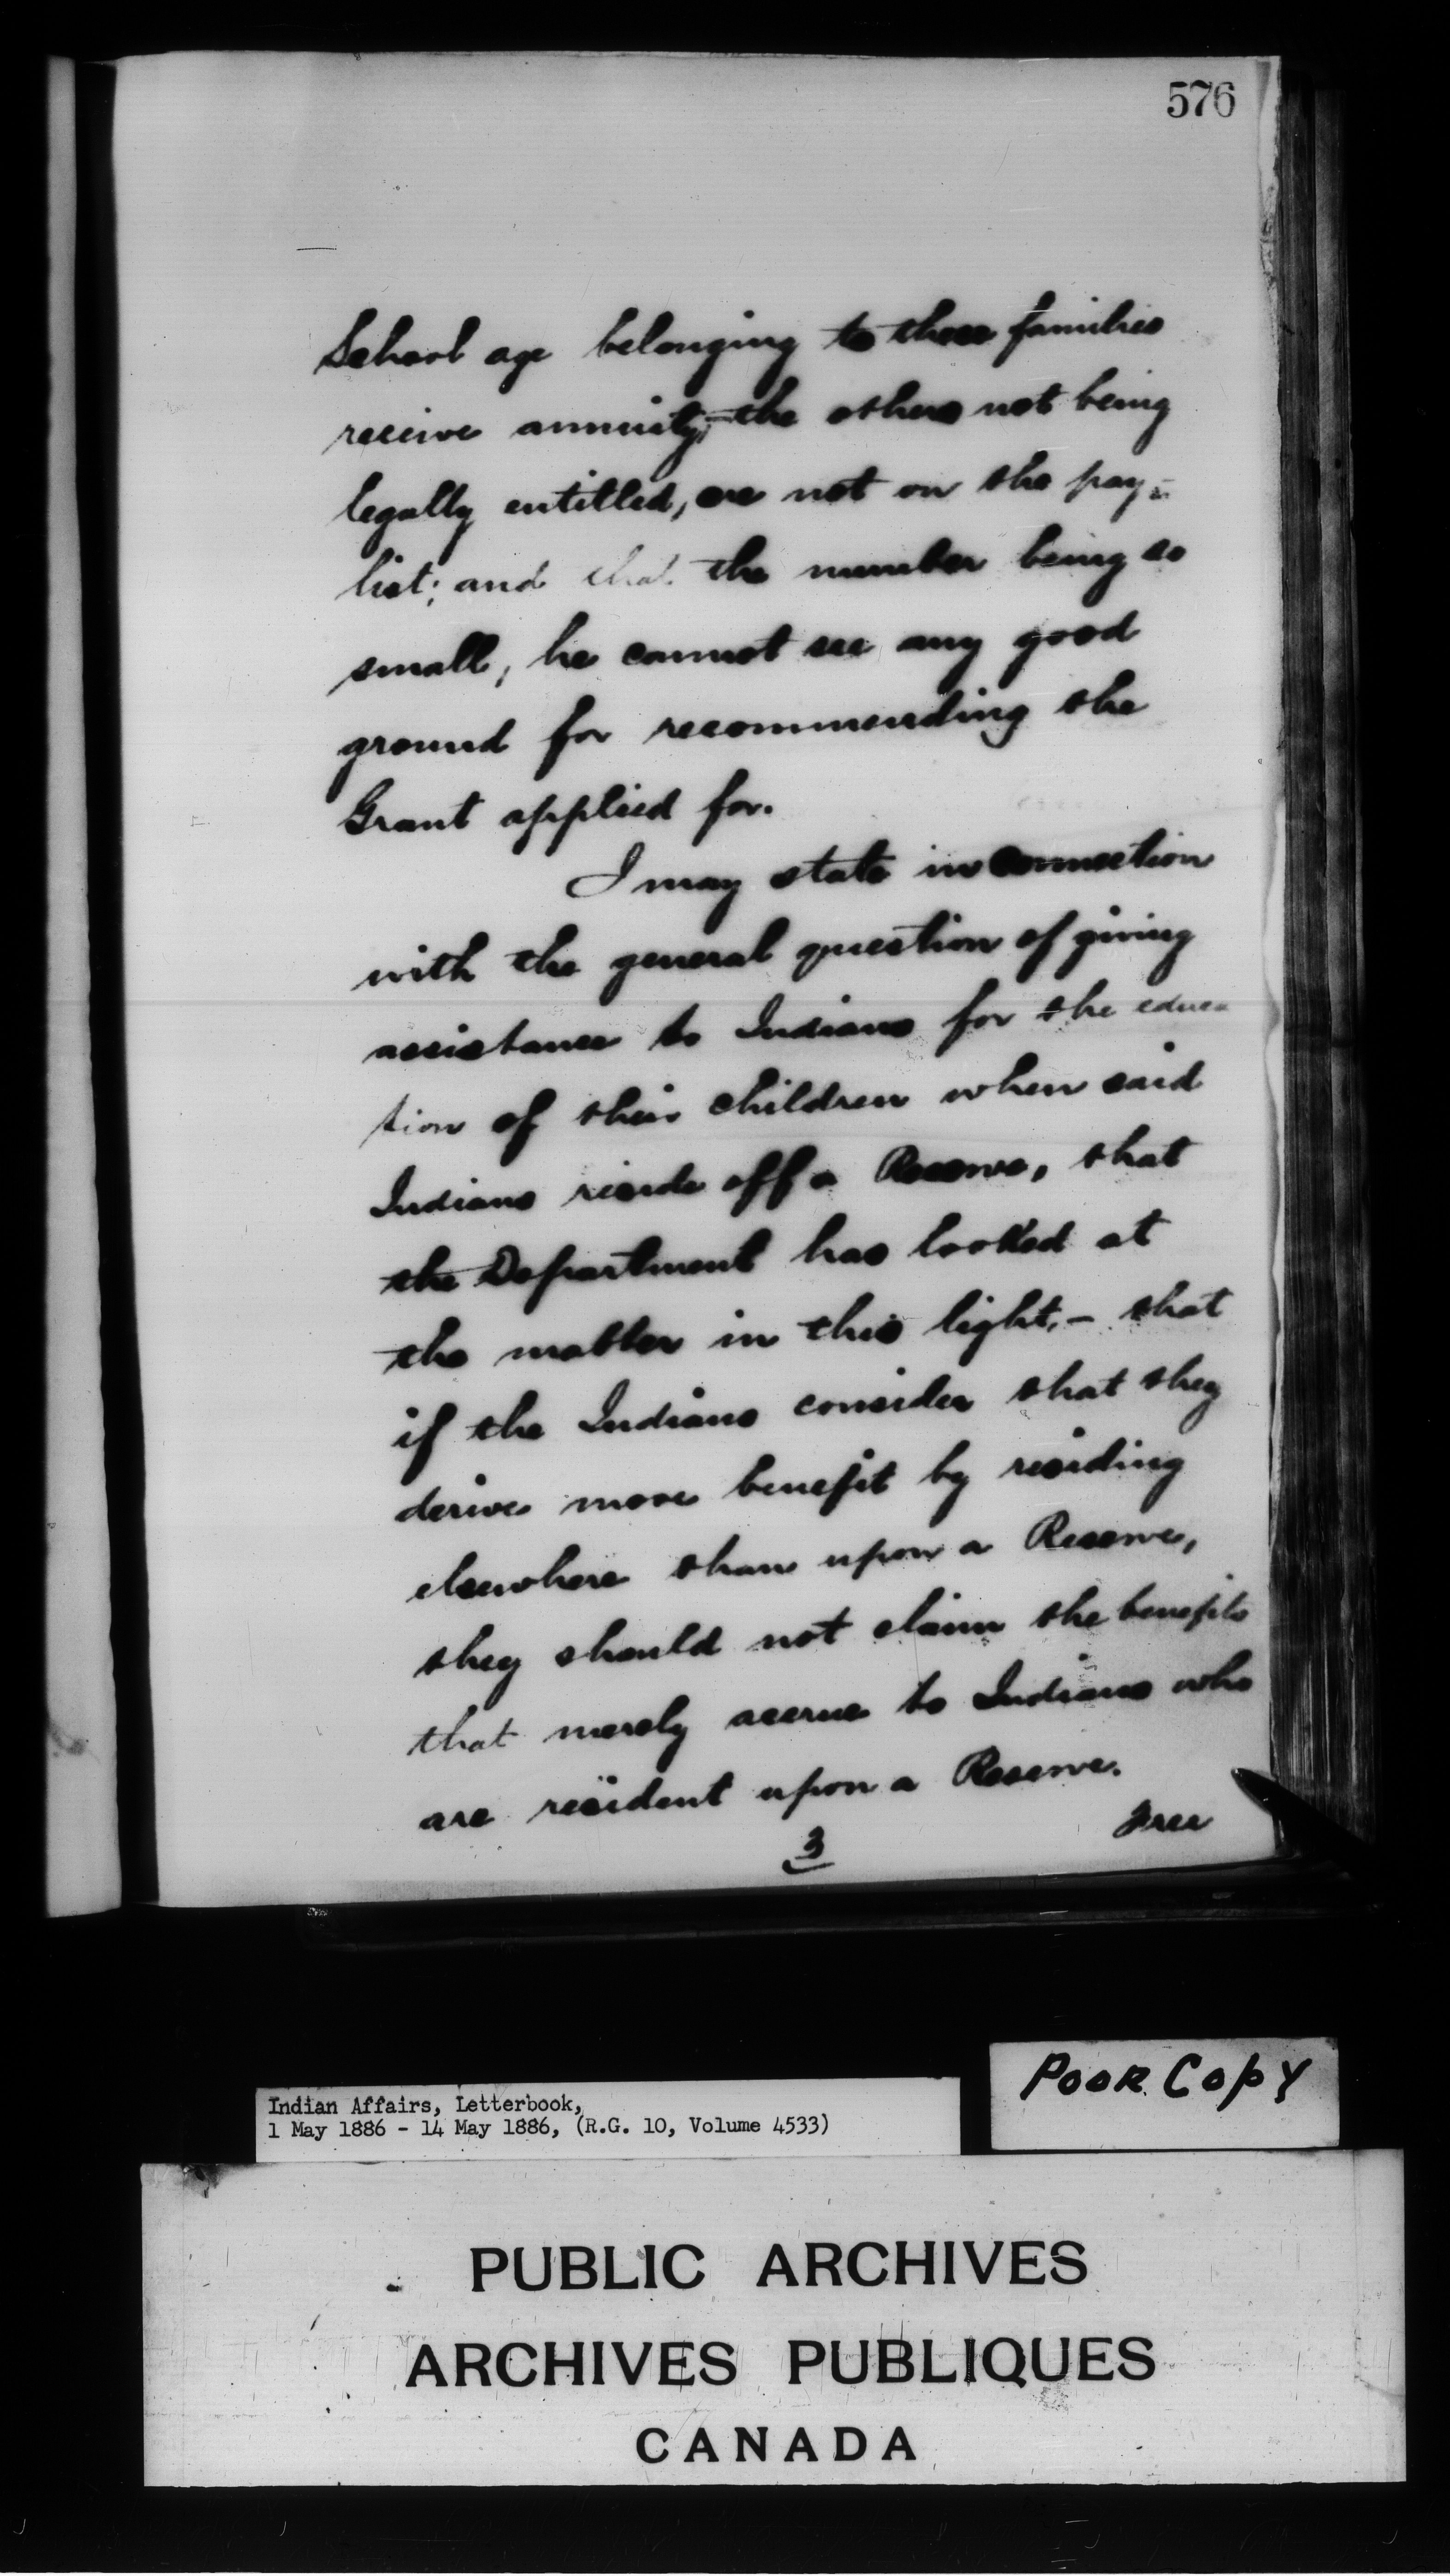 576
School age belonging to these families
receive annuity; - the others not being
legally entitled, are not on the pay-
list; and that the number being so
small, he cannot see any good
ground for recommending the
Grant applied for.
I may state in connection
with the general question of giving
assistance to Indians for the educa
tion of their children when said
Indians reside off a Reserve, that
the Department has looked at
the matter in this light, - that
if the Indians consider that they
derive more benefit by residing
elsewhere than upon a Reserve,
they should not claim the benefits
that merely accrue to Indians who
are resident upon a Reserve.
3
Free
Poor Copy
Indian Affairs, Letterbook,
1 May 1886 - 14 May 1886, (R.G. 10, Volume 4533)
PUBLIC ARCHIVES
ARCHIVES PUBLIQUES
CANADA